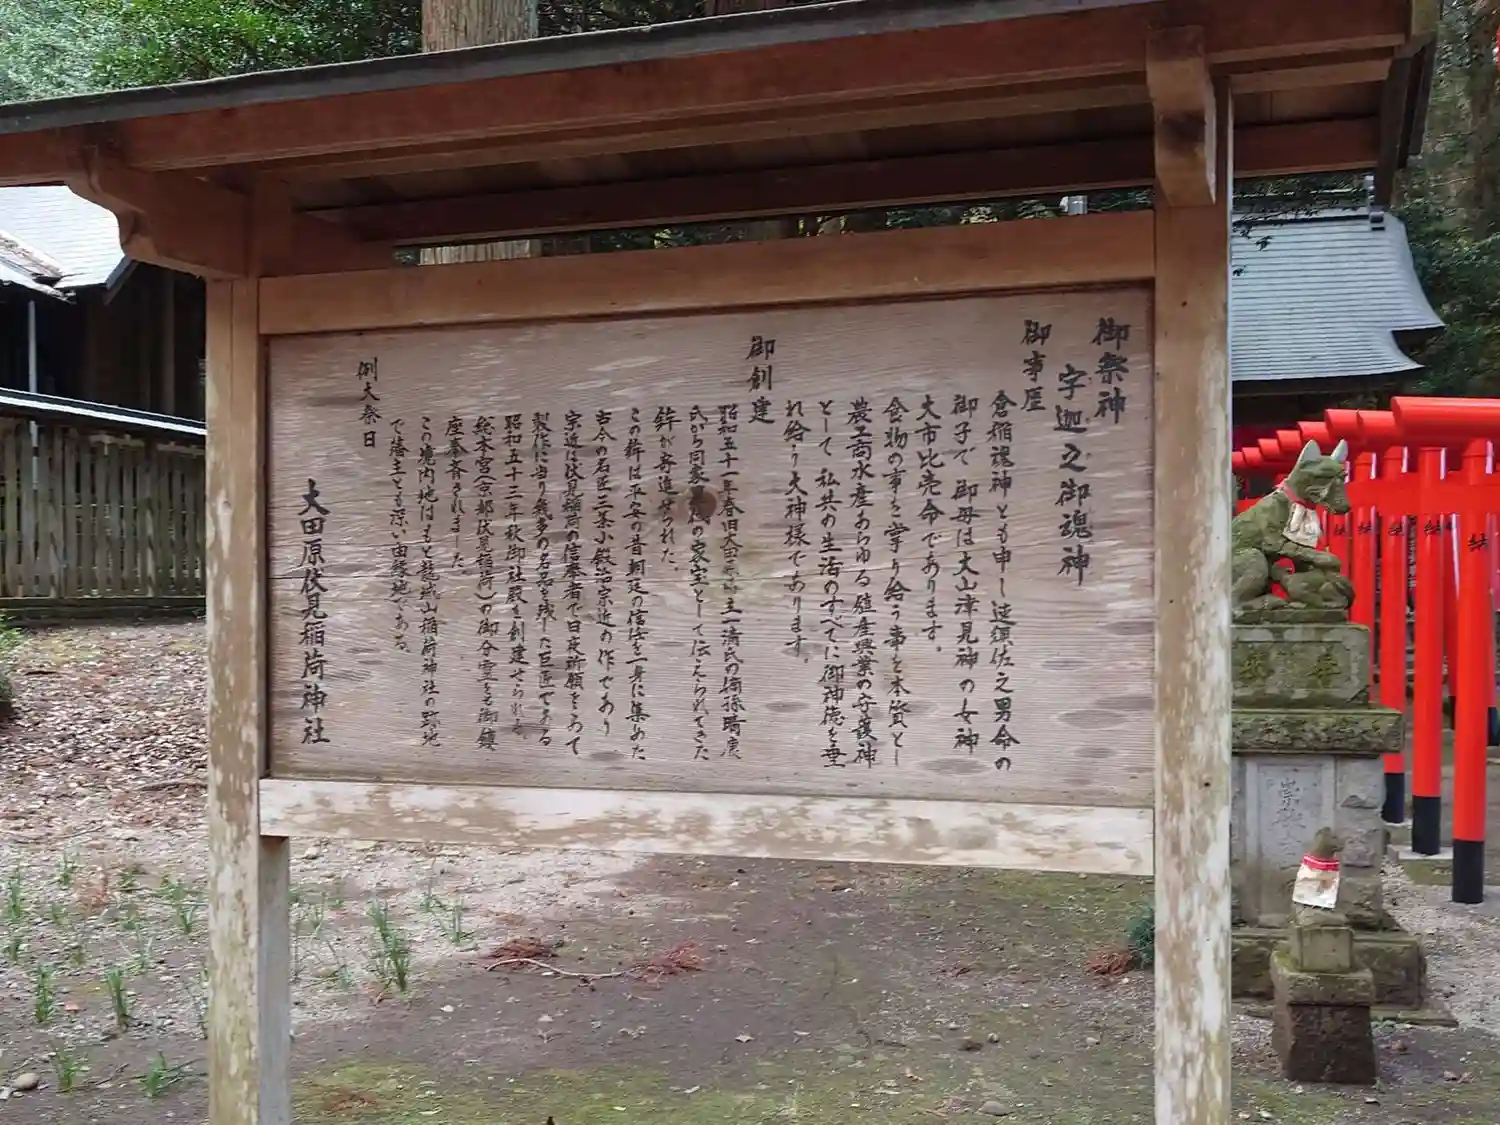 御祭神
宇迦之御魂神
御事歴
倉稲魂神とも申し速須佐之男命の
御子で御母は大山津見神の女神
大市比売命であります。
食物の事を掌り給う事を本質とし
農工商水産あらゆる殖産興業の守護神
として私共の生活のすべてに御神徳を垂
れ給う大神様であります。
御創建
昭和五十一年春旧大田原 主一清氏の 孫晴廣
氏から同家 の家宝として伝えられてきた
鉾が寄進せられた。
この鉾は平安の昔朝廷の信任を一身に集めた
古今の名匠三条小鍛冶宗近の作であり
宗近は伏見稲荷の信奉者で日夜祈願をこめて
製作に当り幾多の名品を残した巨匠である
昭和五十三年秋御社殿を創建せられ
総本宮(京都伏見稲荷)の御分霊を御鎮
座奉斉されました
この境内地はもと龍城山稲荷神社の跡地
で藩主とも深い由縁地である。
例大祭日
大田原伏見稲荷神社
納
納
納
崇敬